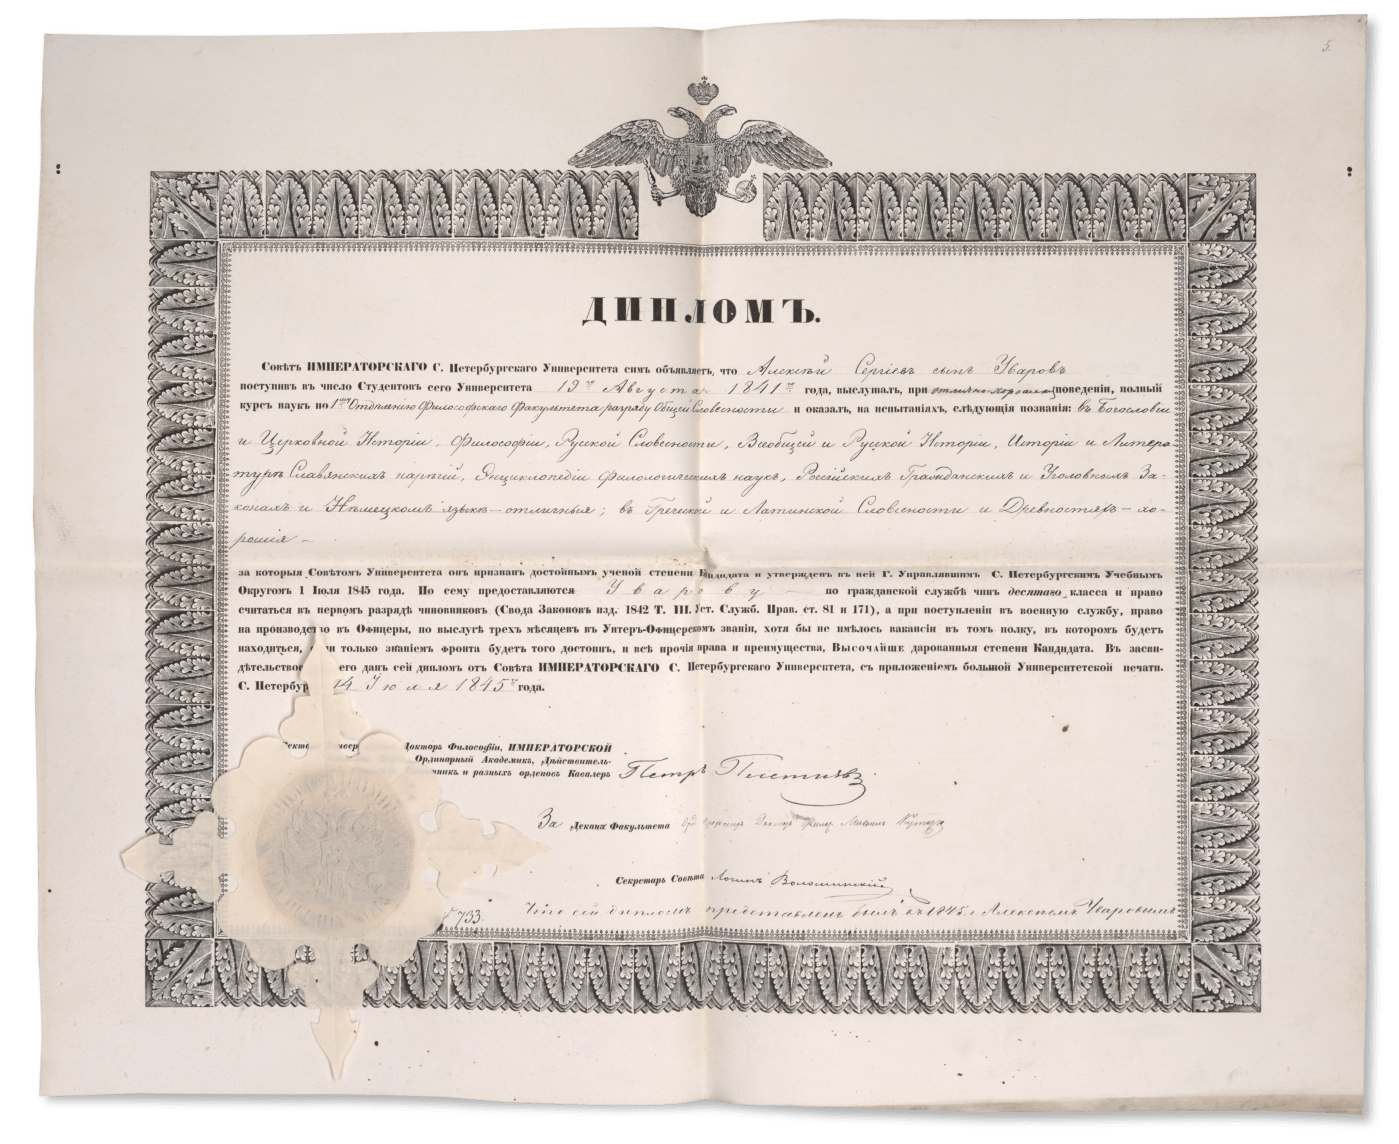 5.
ДИПЛОМЪ.
Совѣтъ ИМПЕРАТОРСКАГО С. Петербургскаго Университета симъ объявляетъ, что Алексѣй Сергѣевъ сынъ Уваровъ
поступивъ въ число Студентовъ сего Университета 19го Августа 1841го года, выслушалъ, при отлично-хорошемъ поведеніи, полный
курсъ наукъ по 1му Отдѣленію Философскаго Факультета разряду Общей Словесности и оказалъ, на испытаніяхъ, слѣдующія познанія: въ Богословіи
и Церковной Исторіи, Философіи, Руской Словесности, Всеобщей и Руской Исторіи, Исторіи и Литера-
турѣ Славянскихъ нарѣчій, Энциклопедіи филологическихъ наукъ, Россійскихъ Гражданскихъ и Уголовныхъ За-
конахъ и Нѣмецкомъ языкѣ – отличныя; въ Греческой и Латинской Словесности и Древностяхъ – хо-
рошія –
за которыя Совѣтомъ Университета онъ признанъ достойнымъ ученой степени Кандидата и утвержденъ въ ней Г. Управлявшимъ С. Петербургскимъ Учебнымъ
Округомъ 1 Іюля 1845 года. По сему предоставляются Уварову – по гражданской службѣ чинъ десятаго класса и право
считаться въ первомъ разрядѣ чиновниковъ (Свода Законовъ изд. 1842 Т. III. Уст. Служб. Прав. ст. 81 и 171), а при поступленіи въ военную службу, право
на производство въ Офицеры, по выслугѣ трехъ мѣсяцевъ въ Унтеръ-Офицерскомъ званіи, хотя бы не имѣлось вакансіи въ томъ полку, въ которомъ будетъ
находиться, если только знаніемъ фронта будетъ того достоинъ, и всѣ прочія права и преимущества, ВЫСОЧАЙШЕ дарованныя степени Кандидата. Въ засви-
дѣтельство его данъ сей дипломъ отъ Совѣта ИМПЕРАТОРСКАГО С. Петербургскаго Университета, съ приложеніемъ большой Университетской печати.
С. Петербур 14 Іюля 1845го года.
Докторъ Философіи, ИМПЕРАТОРСКОЙ
Ординарный Академикъ, Дѣйствитель-
и разныхъ орденовъ Кавалеръ Петръ Плетневъ
За Декана Факультета
Секретарь Совѣта
733. Что сей дипломъ представленъ былъ въ 1845 г. Алексѣемъ Уваровымъ